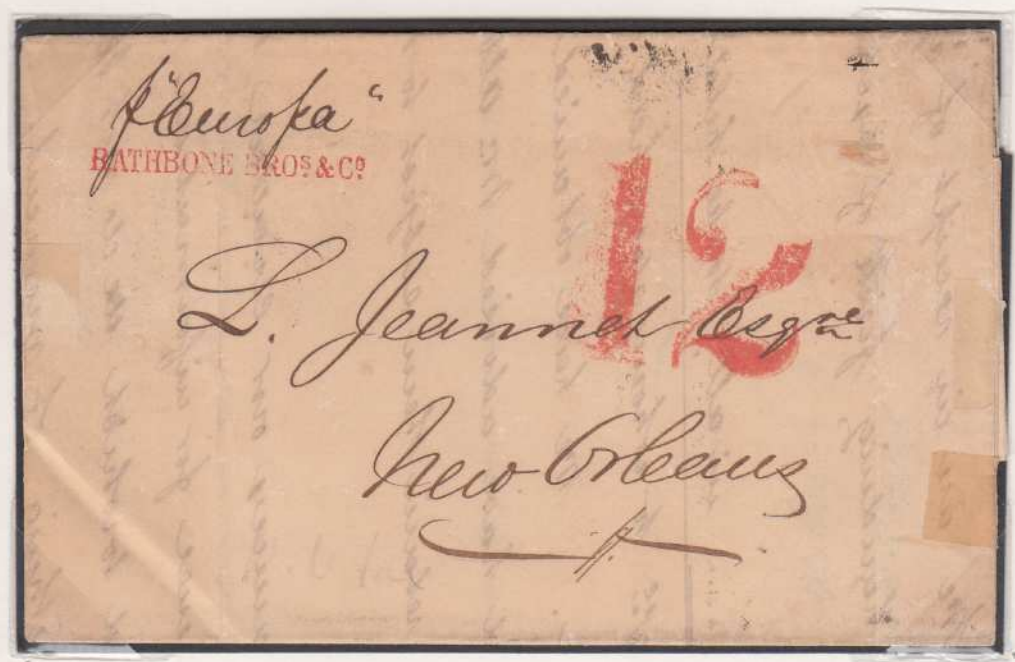 p "Europa"
RATHBONE BROS & Co
12
L. Jeannet Esqre
New Orleans